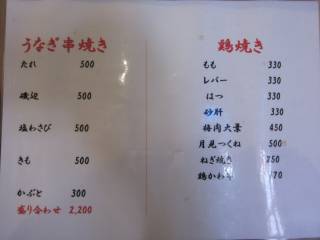 うなぎ串焼き
たれ 500
磯辺 500
塩わさび 500
きも 500
かぶと 300
盛り合わせ 2,200
鶏焼き
もも 330
レバー 330
はつ 330
砂肝 330
梅肉大葉 450
月見つくね 500
ねぎ焼き
鶏かわ